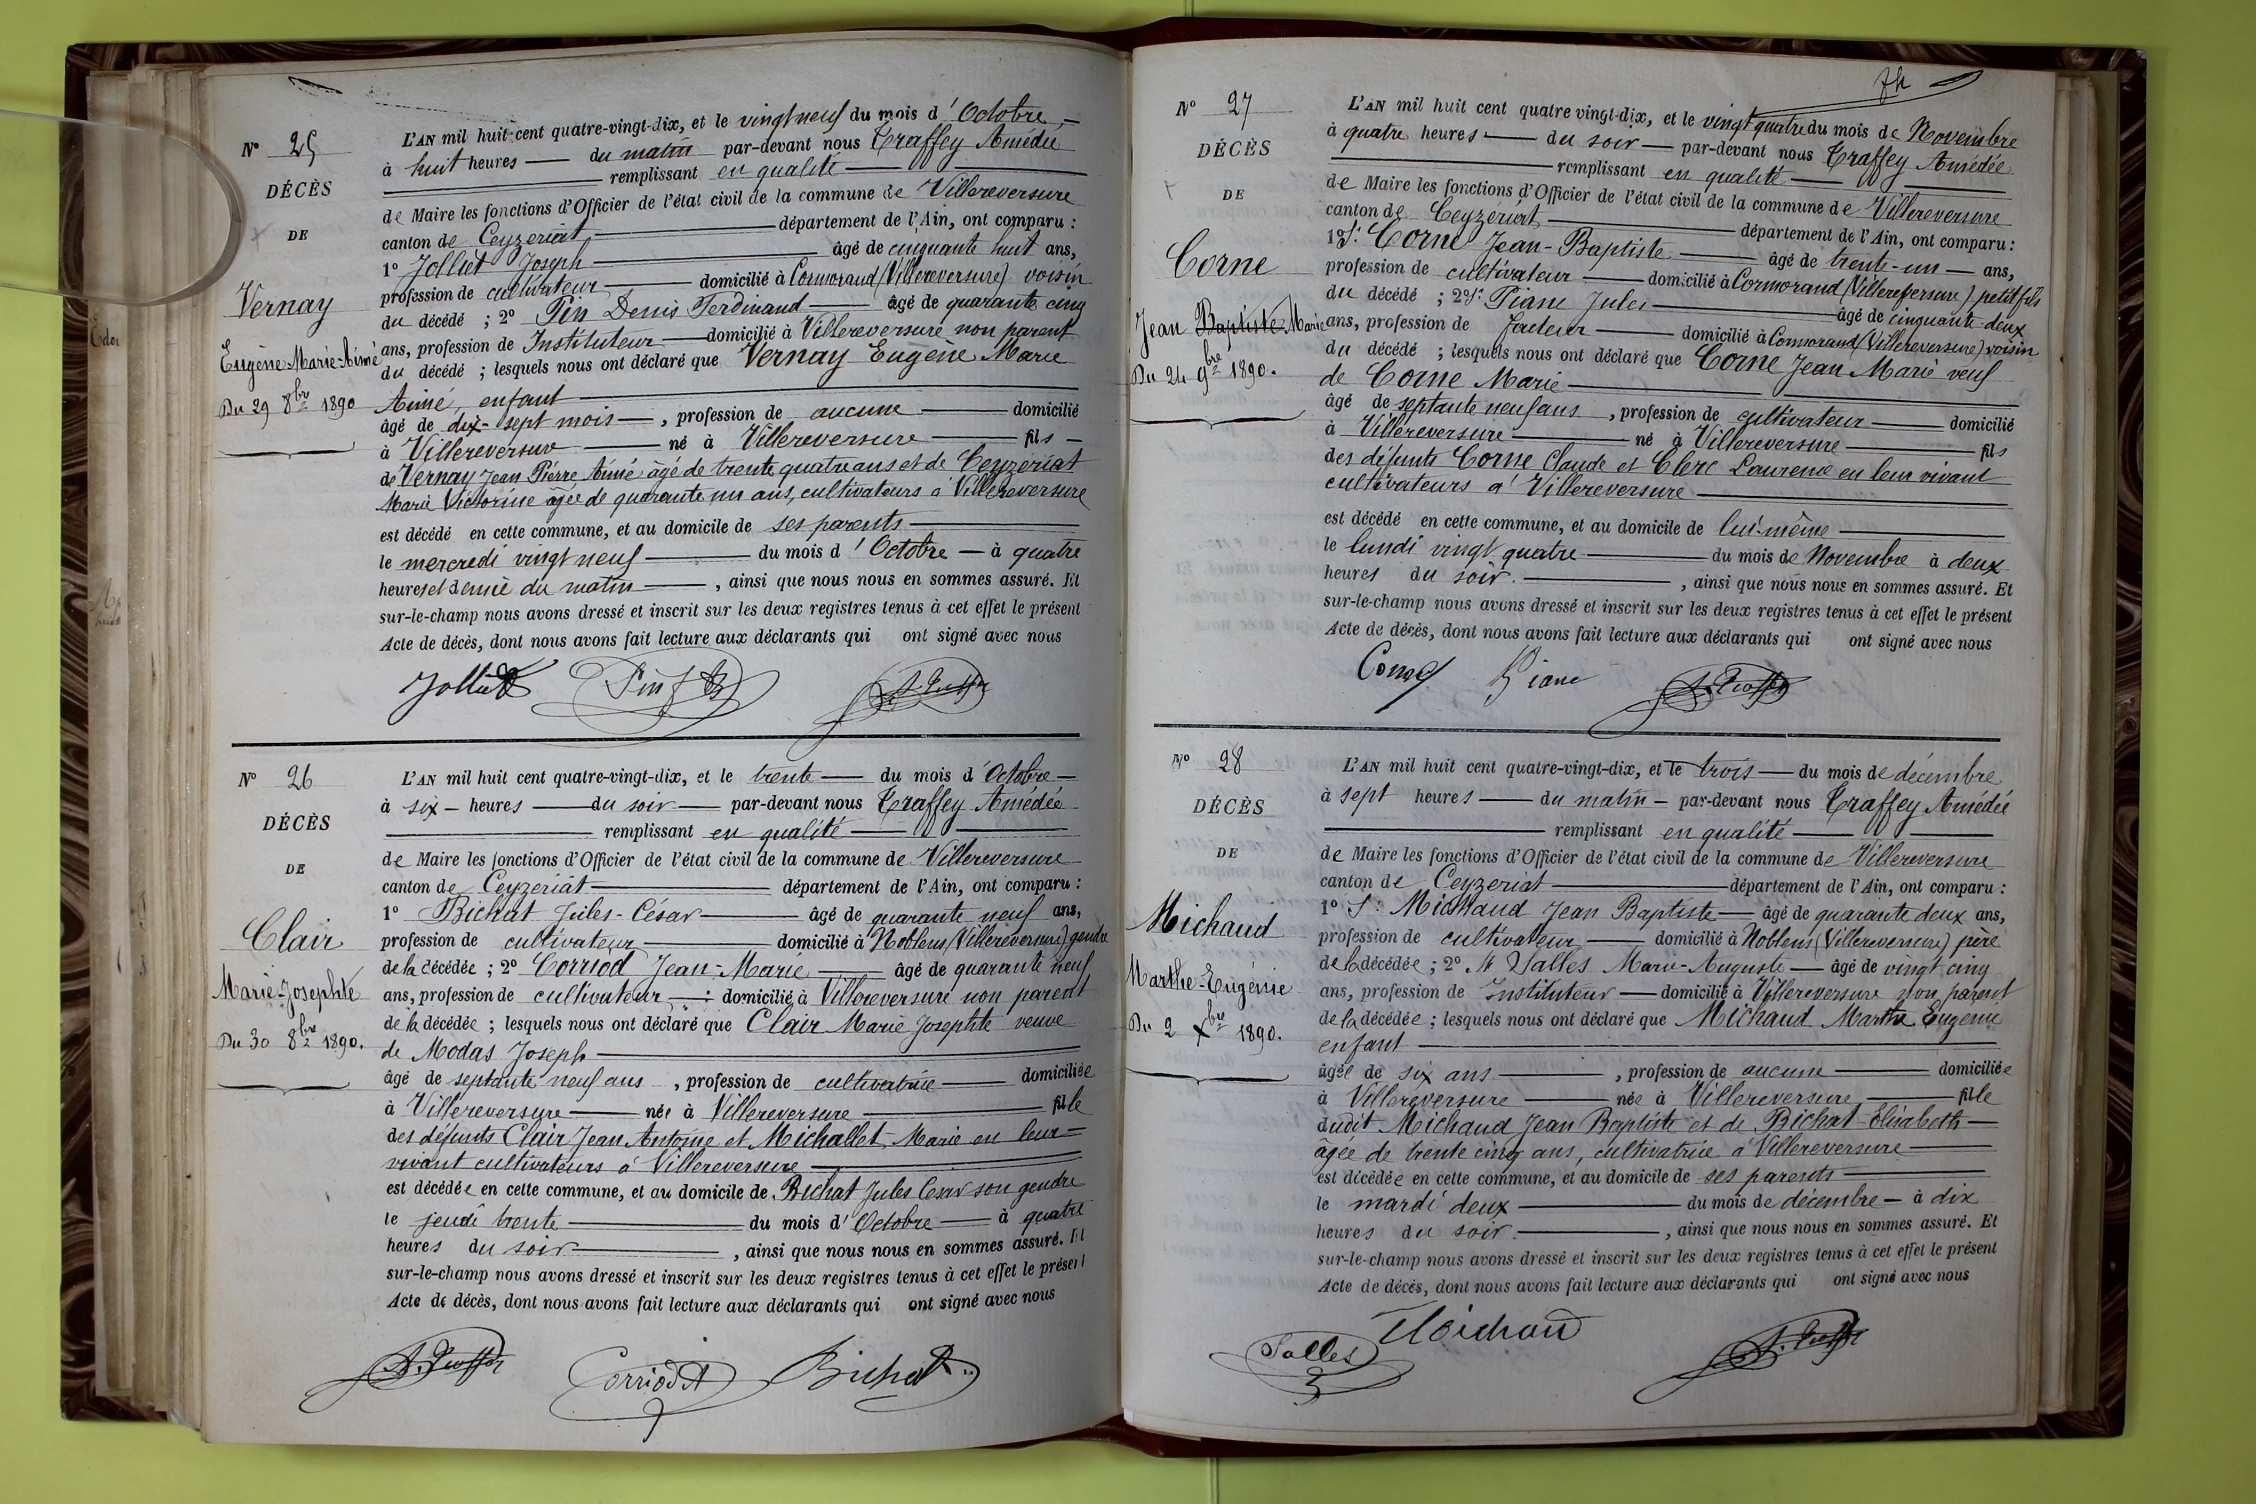 N° 25
DÉCÈS
DE
Vernay
Eugène Marie-Aimé
Du 29 8bre 1890
L'AN mil huit cent quatre-vingt-dix, et le vingt neuf du mois d'Octobre
à huit heures du matin par-devant nous Traffey Amédée
remplissant en qualité
de Maire les fonctions d'Officier de l'état civil de la commune de Villereversure
canton de Ceyzériat département de l'Ain, ont comparu :
1° Jolliet Joseph âgé de cinquante huit ans,
profession de cultivateur domicilié à Cormorand (Villereversure) voisin
du décédé ; 2° Pin Denis Ferdinand âgé de quarante cinq
ans, profession de Instituteur domicilié à Villereversure non parent
du décédé ; lesquels nous ont déclaré que Vernay Eugène Marie
Aimé, enfant
âgé de dix-sept mois, profession de aucune domicilié
à Villereversure né à Villereversure fils
de Vernay Jean Pierre Aimé âgé de trente quatre ans et de Ceyzériat
Marie Victorine âgée de quarante un ans, cultivateurs à Villereversure
est décédé en cette commune, et au domicile de ses parents
le mercredi vingt neuf du mois d'Octobre à quatre
heures et demie du matin, ainsi que nous nous en sommes assuré. Et
sur-le-champ nous avons dressé et inscrit sur les deux registres tenus à cet effet le présent
Acte de décès, dont nous avons fait lecture aux déclarants qui ont signé avec nous
Jolliet Pin A. Traffey
N° 26
DÉCÈS
DE
Clair
Marie-Josephte
Du 30 8bre 1890.
L'AN mil huit cent quatre-vingt-dix, et le trente du mois d'Octobre
à six heures du soir par-devant nous Traffey Amédée
remplissant en qualité
de Maire les fonctions d'Officier de l'état civil de la commune de Villereversure
canton de Ceyzériat département de l'Ain, ont comparu :
1° Bichat Jules-César âgé de quarante neuf ans,
profession de cultivateur domicilié à Noblens (Villereversure) gendre
de la décédée ; 2° Corriod Jean-Marie âgé de quarante neuf
ans, profession de cultivateur domicilié à Villereversure non parent
de la décédée ; lesquels nous ont déclaré que Clair Marie Josephte veuve
de Modas Joseph
âgé de septante neuf ans, profession de cultivatrice domiciliée
à Villereversure née à Villereversure fille
des défunts Clair Jean Antoine et Michallet Marie en leur
vivant cultivateurs à Villereversure
est décédée en cette commune, et au domicile de Bichat Jules César son gendre
le jeudi trente du mois d'Octobre à quatre
heures du soir, ainsi que nous nous en sommes assuré. Et
sur-le-champ nous avons dressé et inscrit sur les deux registres tenus à cet effet le présent
Acte de décès, dont nous avons fait lecture aux déclarants qui ont signé avec nous
A. Traffey Corriod Bichat
N° 27
DÉCÈS
DE
Corne
Jean Baptiste Marie
Du 24 9bre 1890.
L'AN mil huit cent quatre vingt-dix, et le vingt quatre du mois de Novembre
à quatre heures du soir par-devant nous Traffey Amédée
remplissant en qualité
de Maire les fonctions d'Officier de l'état civil de la commune de Villereversure
canton de Ceyzériat département de l'Ain, ont comparu :
1° Sr. Corne Jean-Baptiste âgé de trente-un ans,
profession de cultivateur domicilié à Cormorand (Villereversure) petit fils
du décédé ; 2° Sr. Piane Jules âgé de cinquante-deux
ans, profession de facteur domicilié à Cormorand (Villereversure) voisin
du décédé ; lesquels nous ont déclaré que Corne Jean Marie veuf
de Corne Marie
âgé de septante neuf ans, profession de cultivateur domicilié
à Villereversure né à Villereversure fils
des défunts Corne Claude et Clerc Laurence en leur vivant
cultivateurs à Villereversure
est décédé en cette commune, et au domicile de lui-même
le lundi vingt quatre du mois de Novembre à deux
heures du soir, ainsi que nous nous en sommes assuré. Et
sur-le-champ nous avons dressé et inscrit sur les deux registres tenus à cet effet le présent
Acte de décès, dont nous avons fait lecture aux déclarants qui ont signé avec nous
Corne Piane A. Traffey
N° 28
DÉCÈS
DE
Michaud
Marthe-Eugénie
Du 2 Xbre 1890.
L'AN mil huit cent quatre-vingt-dix, et le trois du mois de décembre
à sept heures du matin par-devant nous Traffey Amédée
remplissant en qualité
de Maire les fonctions d'Officier de l'état civil de la commune de Villereversure
canton de Ceyzériat département de l'Ain, ont comparu :
1° Sr. Michaud Jean Baptiste âgé de quarante deux ans,
profession de cultivateur domicilié à Noblens (Villereversure) père
de la décédée ; 2° Mr Salles Marie-Auguste âgé de vingt cinq
ans, profession de Instituteur domicilié à Villereversure non parent
de la décédée ; lesquels nous ont déclaré que Michaud Marthe Eugénie
enfant
âgée de six ans, profession de aucune domiciliée
à Villereversure née à Villereversure fille
dudit Michaud Jean Baptiste et de Bichat Elisabeth
âgée de trente cinq ans, cultivatrice à Villereversure
est décédée en cette commune, et au domicile de ses parents
le mardi deux du mois de décembre à dix
heures du soir, ainsi que nous nous en sommes assuré. Et
sur-le-champ nous avons dressé et inscrit sur les deux registres tenus à cet effet le présent
Acte de décès, dont nous avons fait lecture aux déclarants qui ont signé avec nous
Salles Michaud A. Traffey